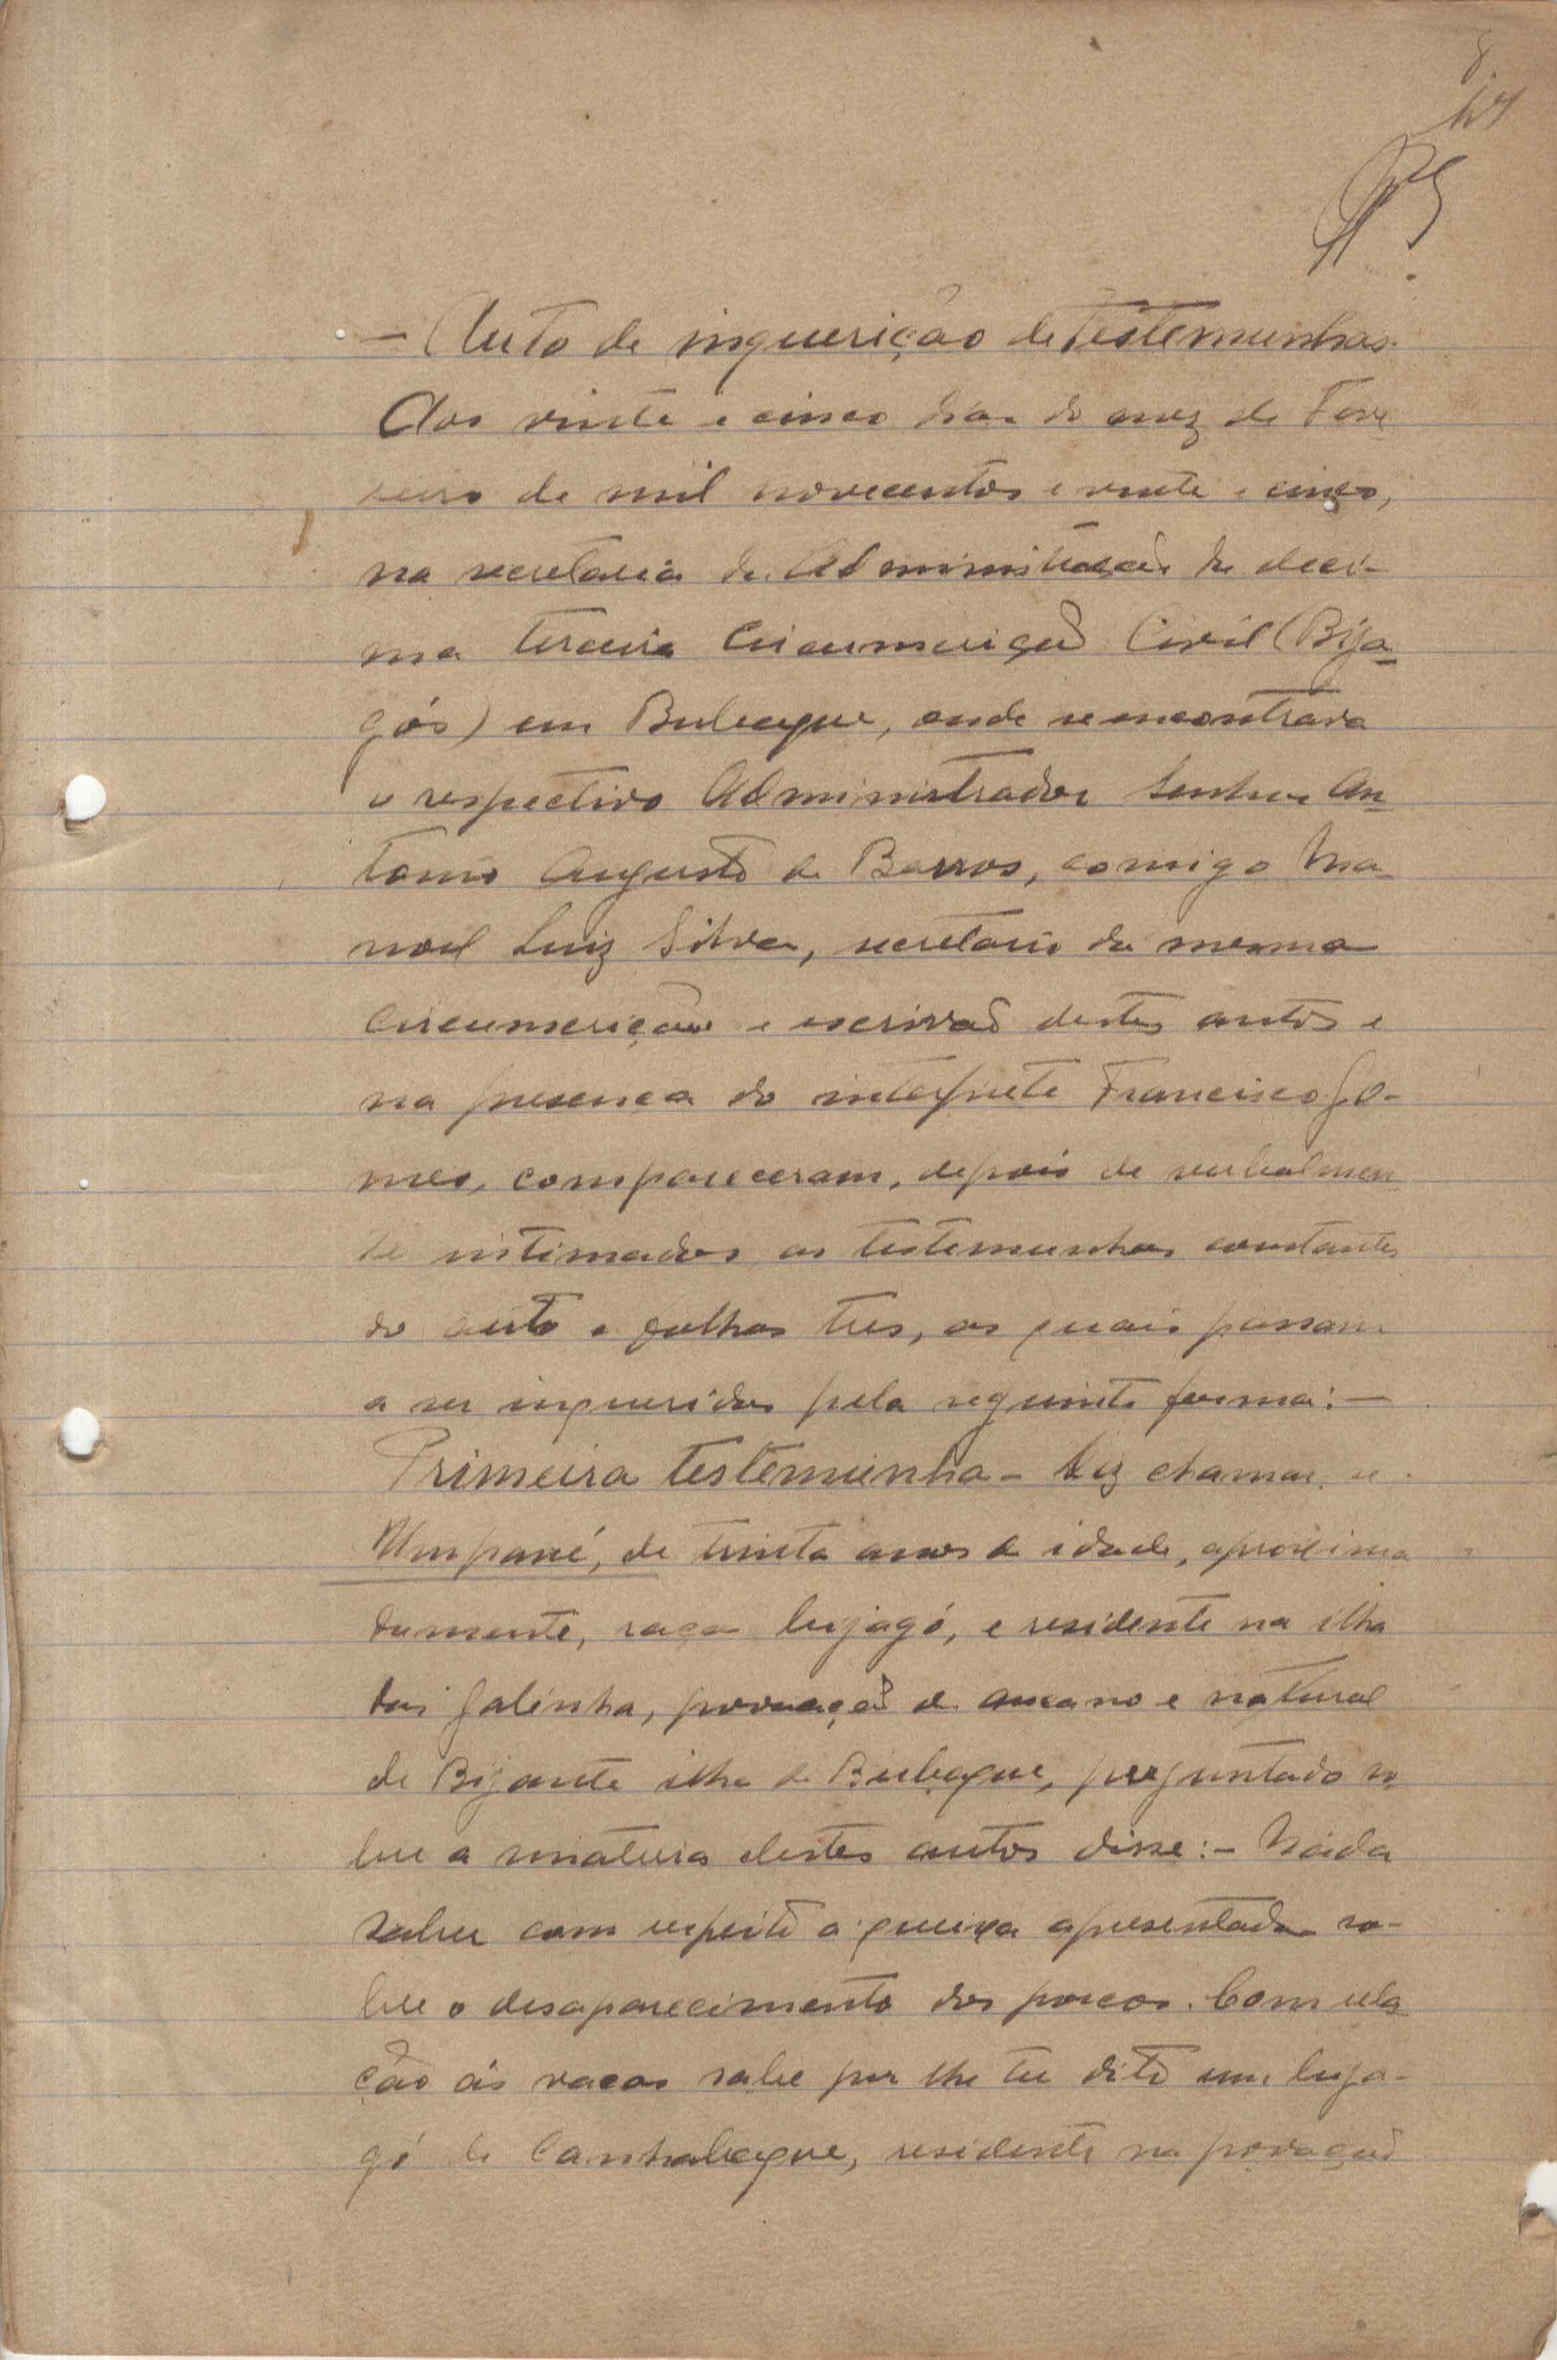 8
- Auto de inquerição de testemunhas.
Aos vinte e cinco dias do mez de Feve
reiro de mil novecentos e vinte e cinco,
na secretaria da Administração da deci-
ma terceira Circumscrição Civil (Bija-
gós) em Bubaque, onde se encontrava
o respectivo Administrador Senhor An-
tonio Augusto de Barros, comigo Ma-
noel Luiz Silva, secretario da mesma
Circumscrição e escrivão destes autos e
na presença do interprete Francisco Go-
mes, compareceram, depois de verbalmen
te intimados as testemunhas constantes
do auto a folhas tres, as quais passam
a ser inqueridas pela seguinte forma:-
Primeira testemunha - Diz chamar-se
Umpané, de trinta anos de idade, aproxima
damente, raça bijagó, e residente na ilha
das Galinha, povoação de Ancano e natural
de Bijante ilha de Bubaque, perguntado so
bre a materia destes autos disse:- Nada
saber com respeito a queixa apresentada so-
bre o desaparecimento dos porcos. Com rela
ção ás vacas sabe por lhe ter dito um bija-
gó de Canhabaque, residente na povoação